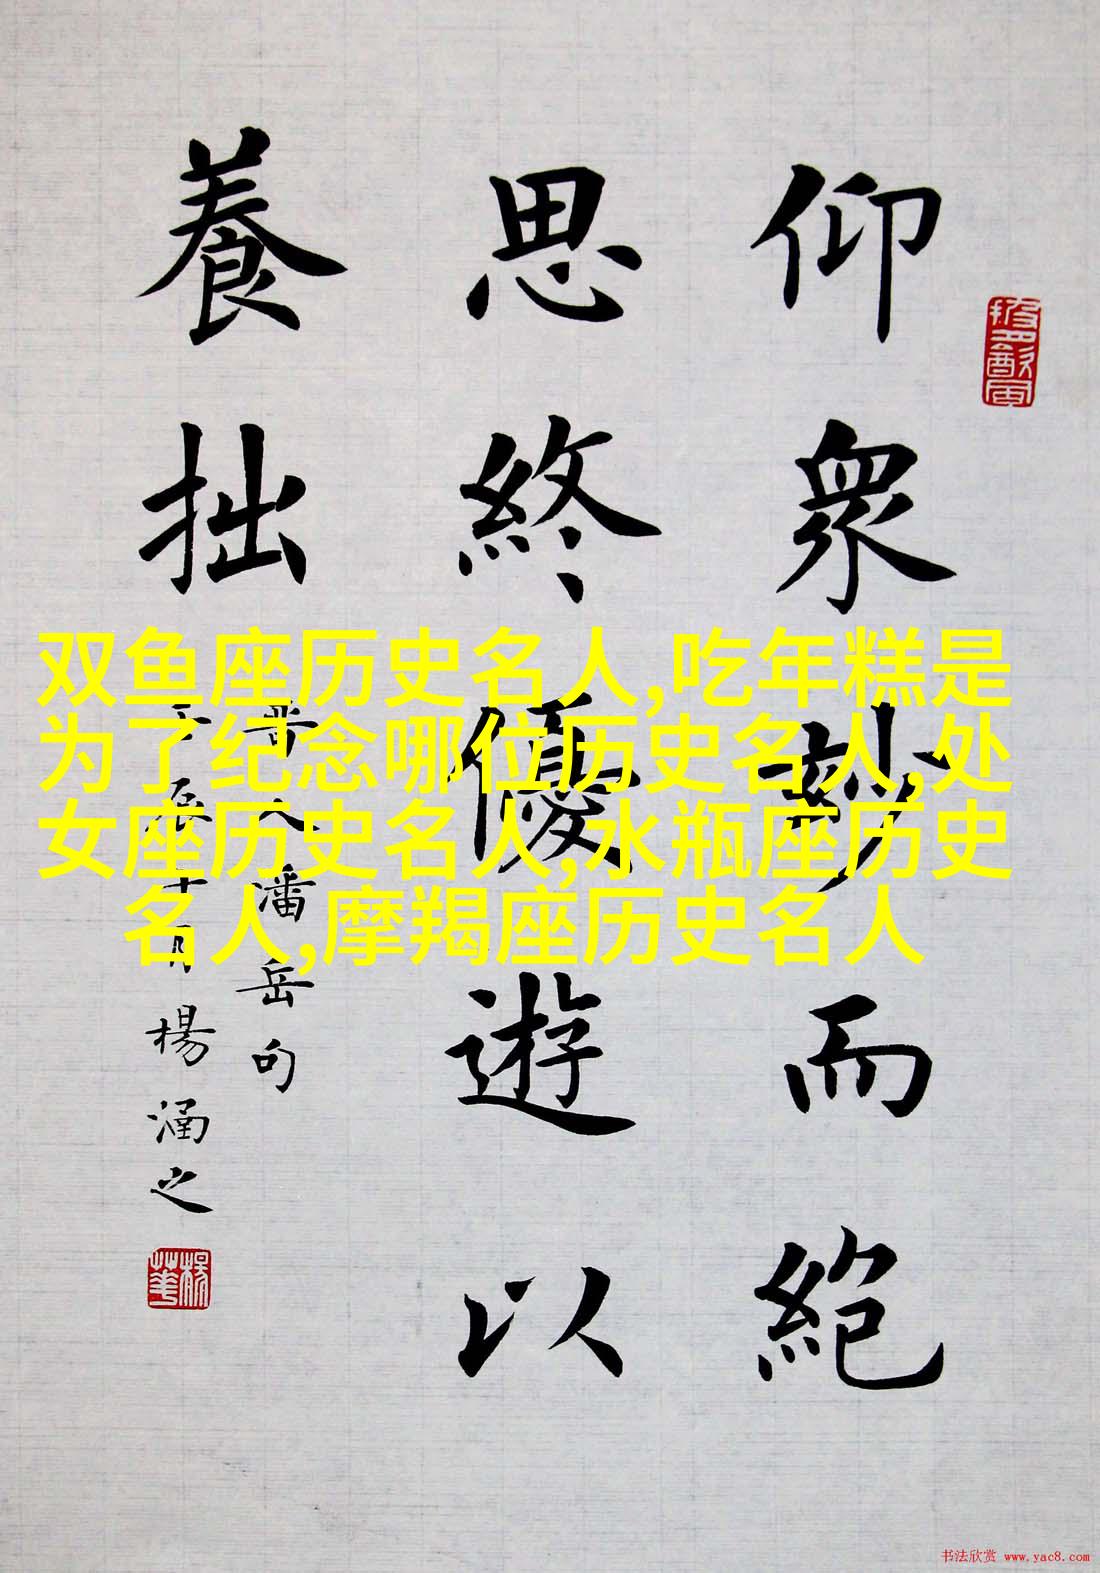 仰眾妙而絕
思終優遊以
養拙
晋人潘岳句
楊涵之
双鱼座历史名人,吃年糕是
为了纪念哪位历史名人,处
女座历史名人,水瓶座历史
名人,摩羯座历史名人
书法欣赏 www.yac8.com